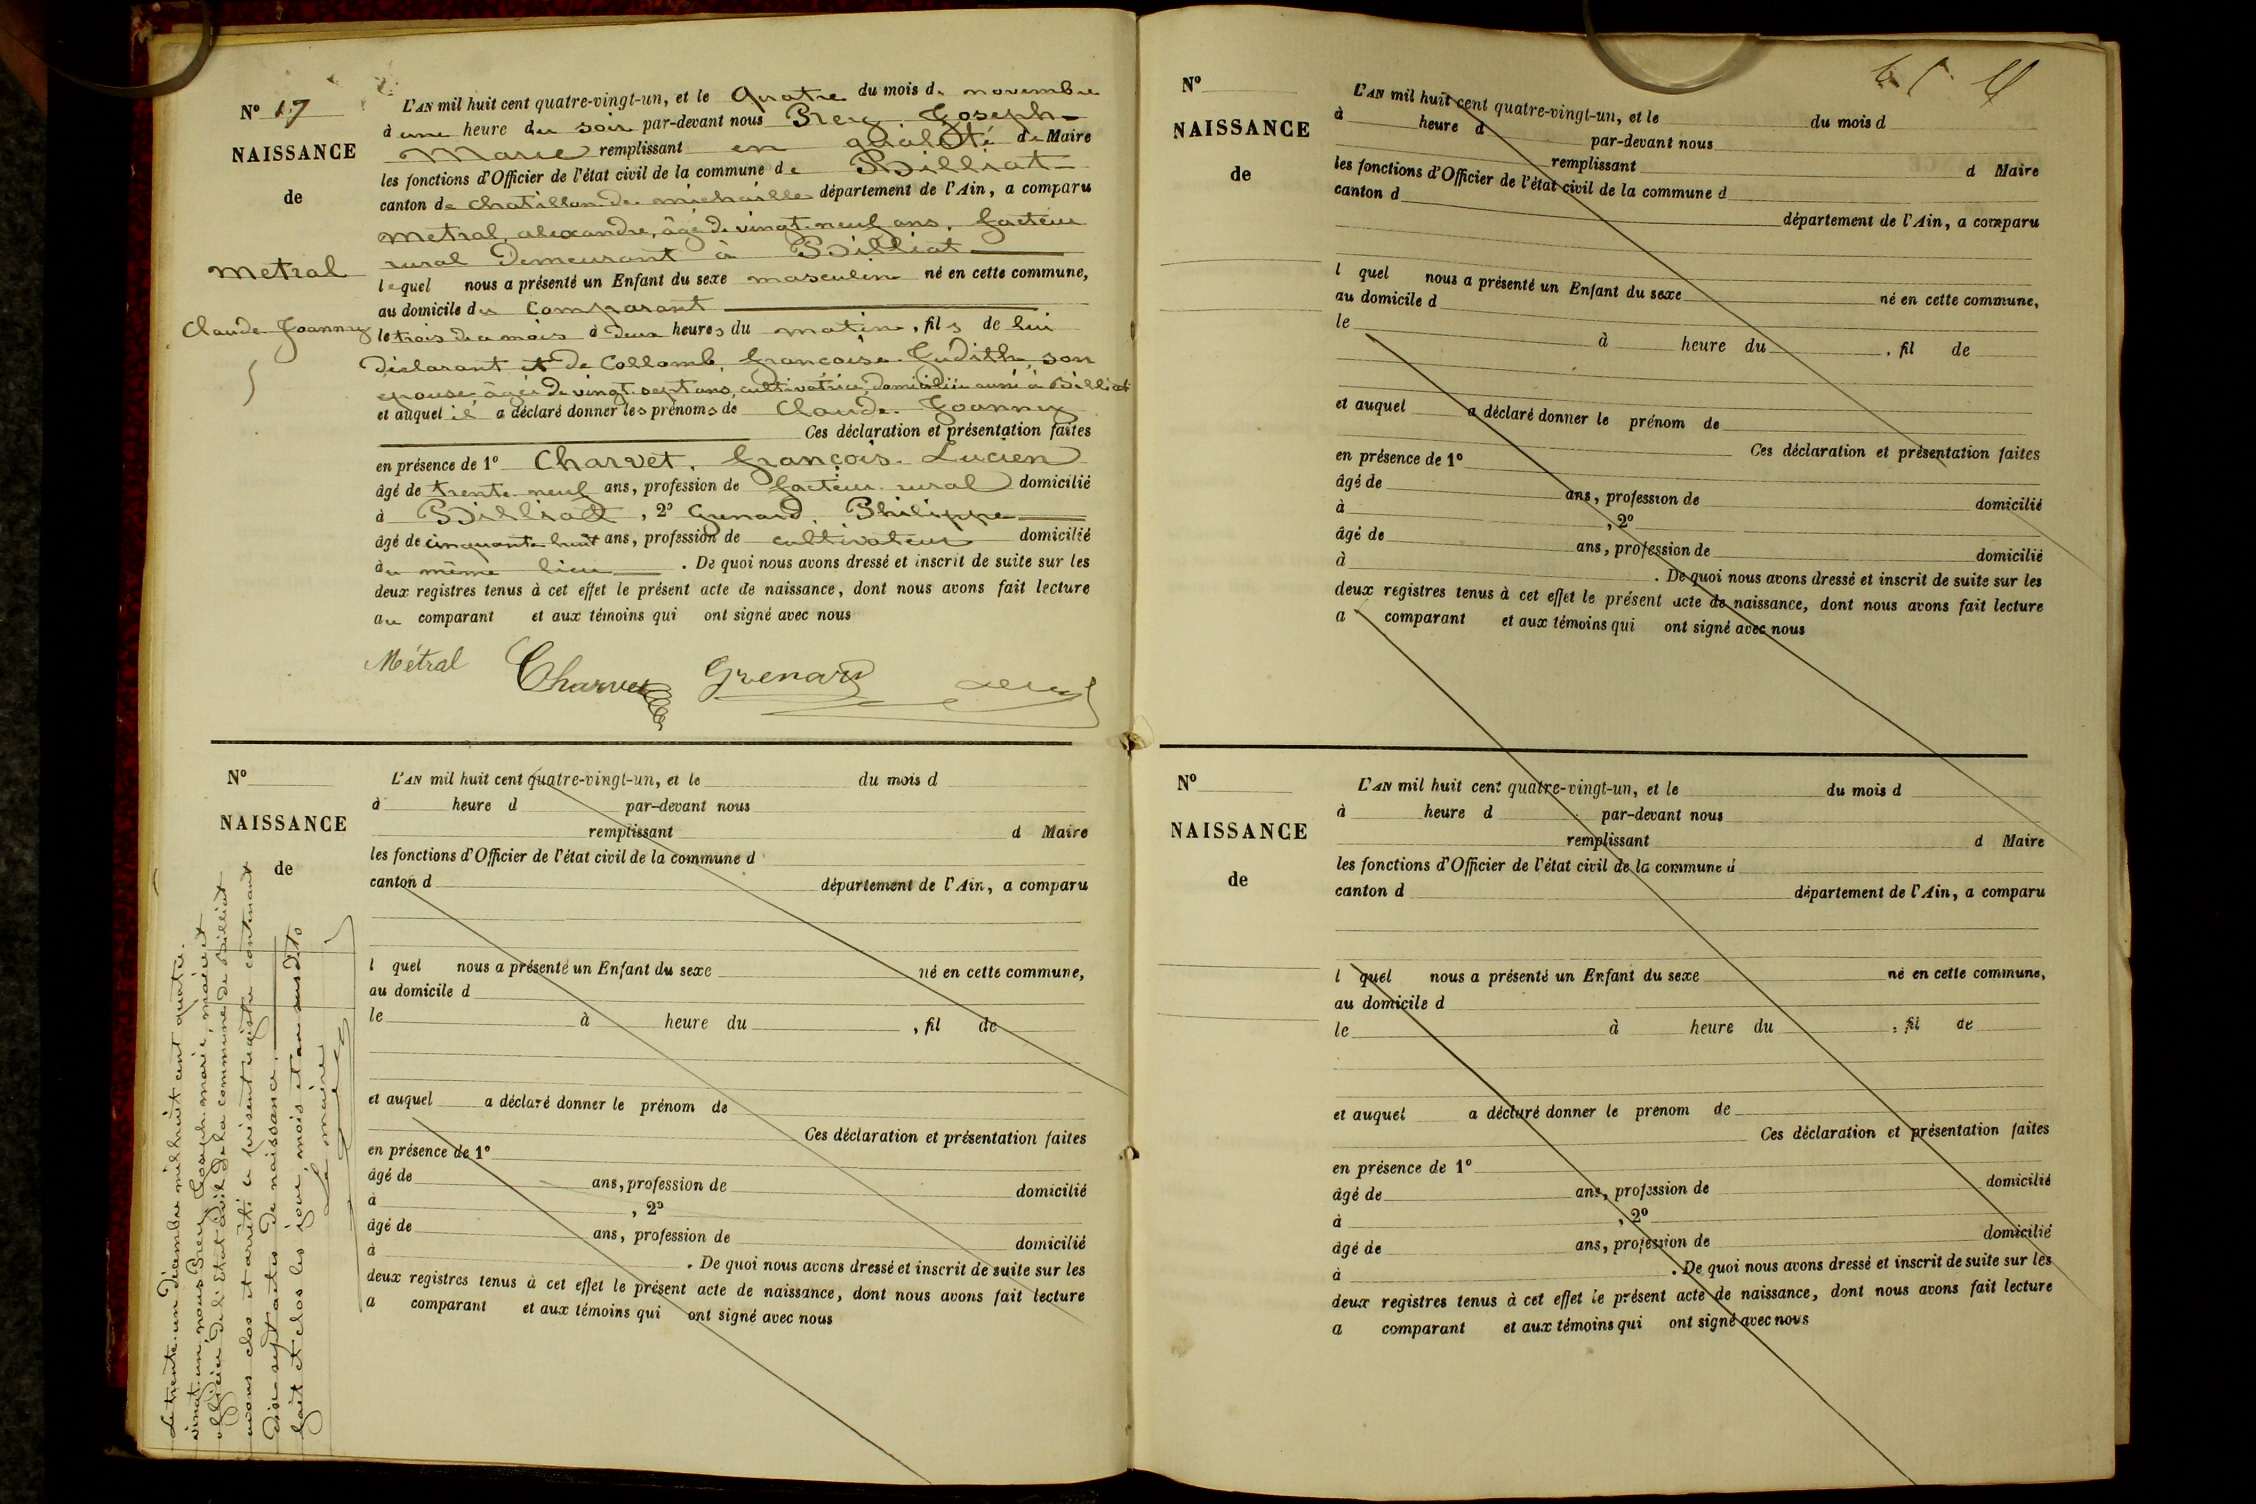 N° 17
NAISSANCE
de
Metral
Claude Joanny
L'AN mil huit cent quatre-vingt-un, et le quatre du mois de novembre
à une heure du soir par-devant nous Prey Joseph
Marie remplissant en qualité de Maire
les fonctions d'Officier de l'état civil de la commune de Billiat
canton de chatillon de michaille département de l'Ain, a comparu
Metral, alexandre, âgé de vingt-neuf ans, facteur
rural demeurant à Billiat
lequel nous a présenté un Enfant du sexe masculin né en cette commune,
au domicile du comparant
le trois du mois à deux heures du matin, fils de lui
déclarant et de Collomb, françoise Judith, son
épouse âgée de vingt-sept ans, cultivatrice, domiciliée aussi à Billiat
et auquel il a déclaré donner les prénoms de Claude Joanny
Ces déclaration et présentation faites
en présence de 1° Charvet, françois Lucien
âgé de trente neuf ans, profession de facteur rural domicilié
à Billiat, 2° Grenard, Philippe
âgé de cinquante huit ans, profession de cultivateur domicilié
au même lieu. De quoi nous avons dressé et inscrit de suite sur les
deux registres tenus à cet effet le présent acte de naissance, dont nous avons fait lecture
au comparant et aux témoins qui ont signé avec nous
Métral Charvet Grenard
N°
NAISSANCE
de
L'AN mil huit cent quatre-vingt-un, et le du mois d
à heure d par-devant nous
remplissant d Maire
les fonctions d'Officier de l'état civil de la commune d
canton d département de l'Ain, a comparu
l quel nous a présenté un Enfant du sexe né en cette commune,
au domicile d
le à heure du , fil de
et auquel a déclaré donner le prénom de
Ces déclaration et présentation faites
en présence de 1°
âgé de ans, profession de domicilié
à , 2°
âgé de ans, profession de domicilié
à . De quoi nous avons dressé et inscrit de suite sur les
deux registres tenus à cet effet le présent acte de naissance, dont nous avons fait lecture
a comparant et aux témoins qui ont signé avec nous
Le trente-un décembre mil huit cent quatre-
vingt-un, nous Prey Joseph marie, maire et
officier de l'Etat civil de la commune de Billiat
avons clos et arrêté le présent registre contenant
dix-sept actes de naissance.
fait et clos les jour, mois et an susdits
Le maire
N°
NAISSANCE
de
L'AN mil huit cent quatre-vingt-un, et le du mois d
à heure d par-devant nous
remplissant d Maire
les fonctions d'Officier de l'état civil de la commune d
canton d département de l'Ain, a comparu
l quel nous a présenté un Enfant du sexe né en cette commune,
au domicile d
le à heure du , fil de
et auquel a déclaré donner le prénom de
Ces déclaration et présentation faites
en présence de 1°
âgé de ans, profession de domicilié
à , 2°
âgé de ans, profession de domicilié
à . De quoi nous avons dressé et inscrit de suite sur les
deux registres tenus à cet effet le présent acte de naissance, dont nous avons fait lecture
a comparant et aux témoins qui ont signé avec nous
N°
NAISSANCE
de
L'AN mil huit cent quatre-vingt-un, et le du mois d
à heure d par-devant nous
remplissant d Maire
les fonctions d'Officier de l'état civil de la commune d
canton d département de l'Ain, a comparu
l quel nous a présenté un Enfant du sexe né en cette commune,
au domicile d
le à heure du , fil de
et auquel a déclaré donner le prénom de
Ces déclaration et présentation faites
en présence de 1°
âgé de ans, profession de domicilié
à , 2°
âgé de ans, profession de domicilié
à . De quoi nous avons dressé et inscrit de suite sur les
deux registres tenus à cet effet le présent acte de naissance, dont nous avons fait lecture
a comparant et aux témoins qui ont signé avec nous